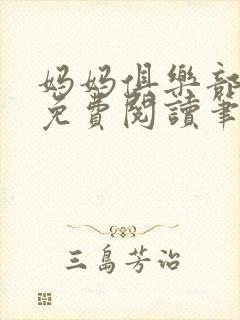 妈妈俱樂部
免費閱讀筆
三島芳治